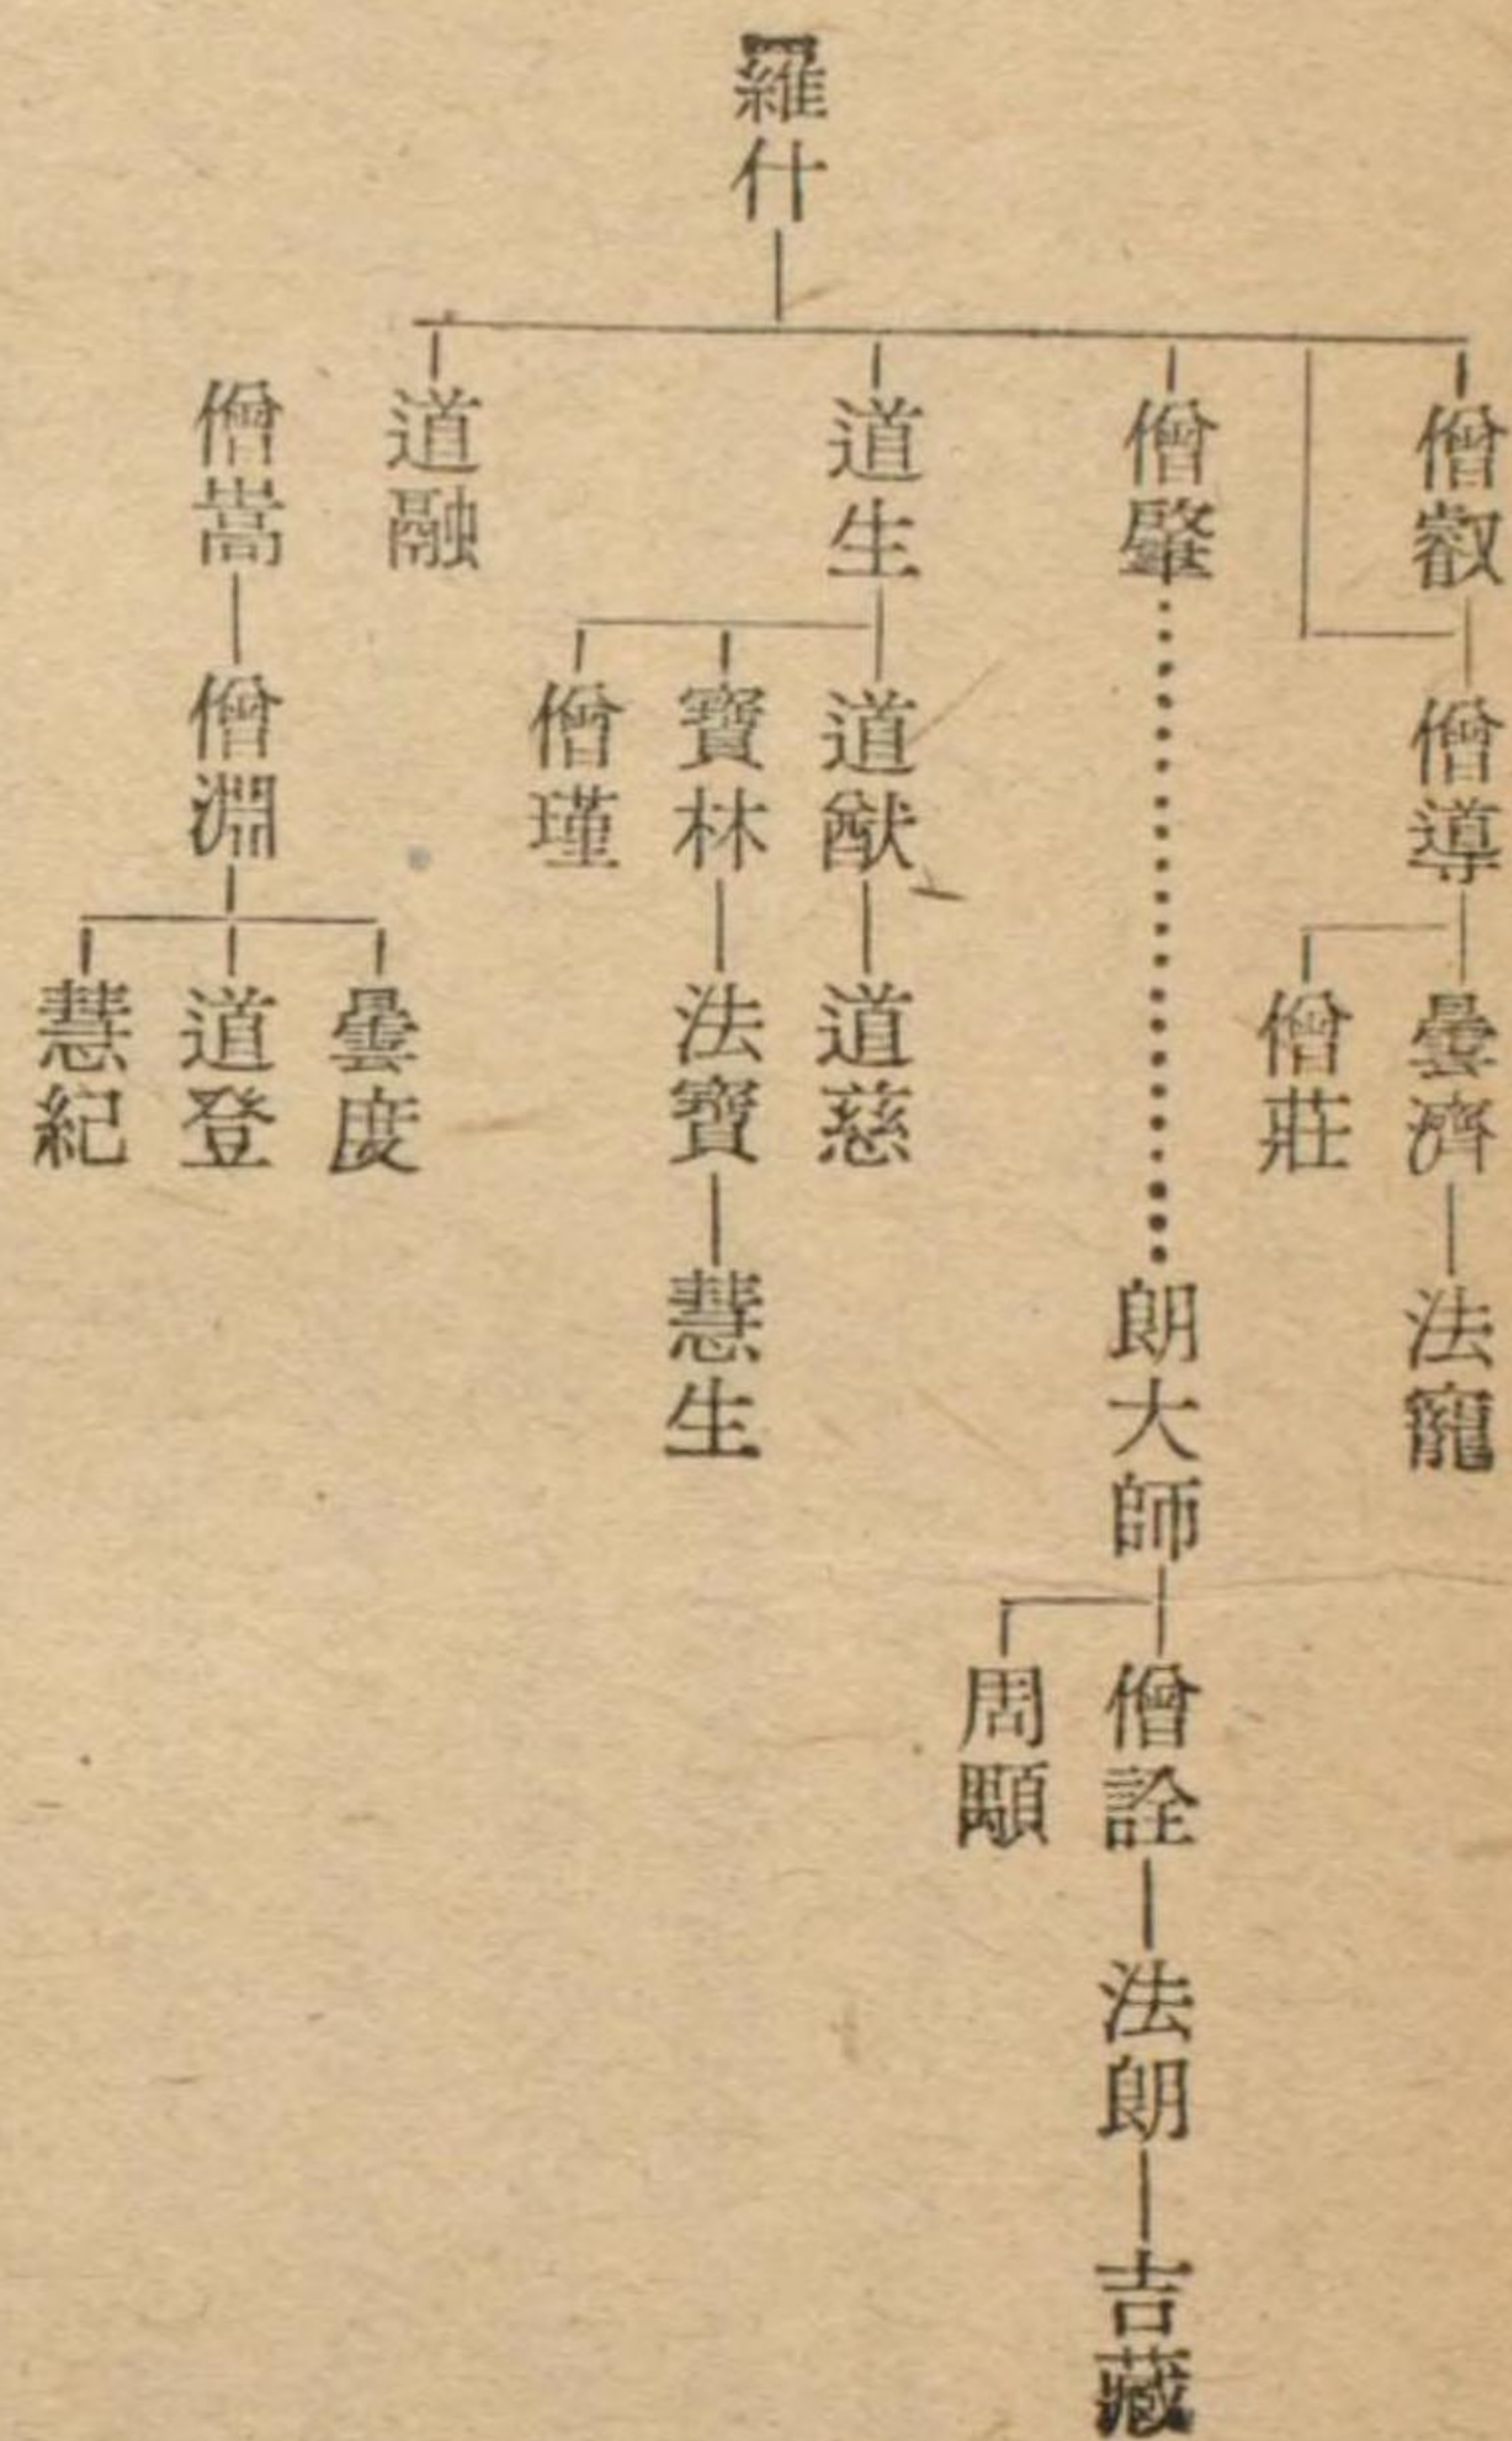 羅什
僧叡
僧導
曇濟
法寵
僧莊
僧肇
朗大師
僧詮
法朗
吉藏
周顒
道生
道猷
道慈
寶林
法寶
慧生
僧瑾
道融
僧嵩
僧淵
曇度
道登
慧紀